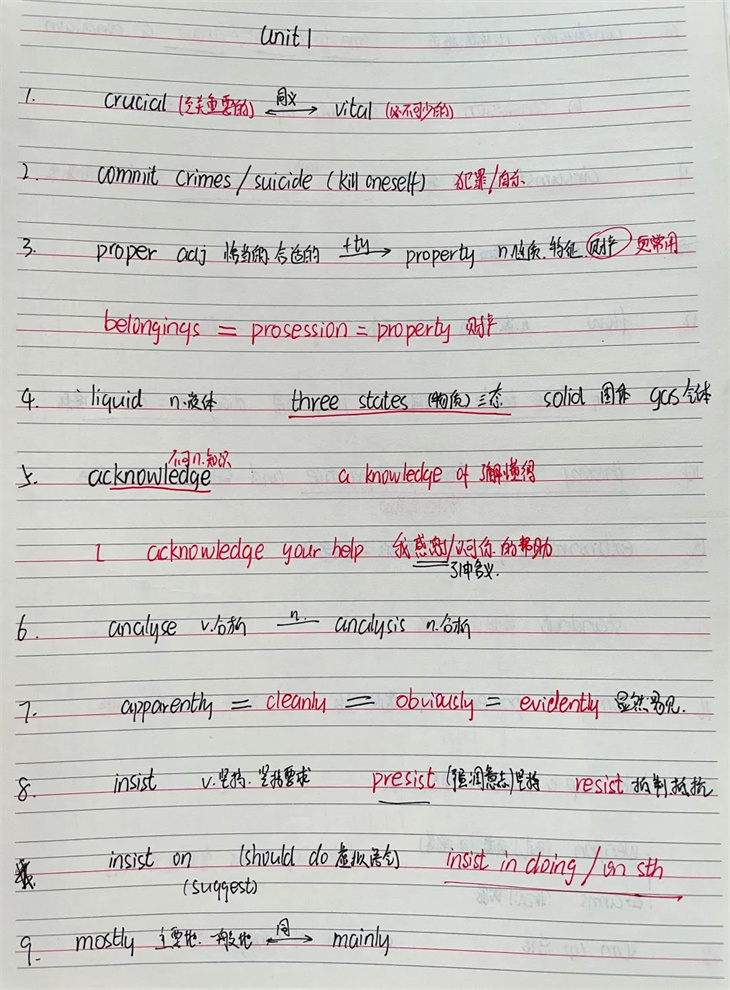 Unit 1
1. crucial (至关重要的) ←同义→ vital (必不可少的)
2. commit crimes / suicide (kill oneself) 犯罪/自杀
3. proper adj 恰当的 合适的 +ty→ property n.性质.特征.财产 更常用
belongings = prosession = property 财产
4. liquid n.液体 three states (物质)三态 solid 固体 gas 气体
不可n.知识
5. acknowledge a knowledge of 了解懂得
I acknowledge your help 我感激/认可你的帮助
引申含义.
6. analyse v.分析 n. analysis n.分析
7. apparently = cleanly = obviously = evidently 显然易见.
8. insist v.坚持.坚持要求 presist (强调意志)坚持 resist 抵制抵抗
insist on (should do 虚拟语气) insist in doing / on sth
(suggest)
9. mostly 主要地.一般地 ←同→ mainly